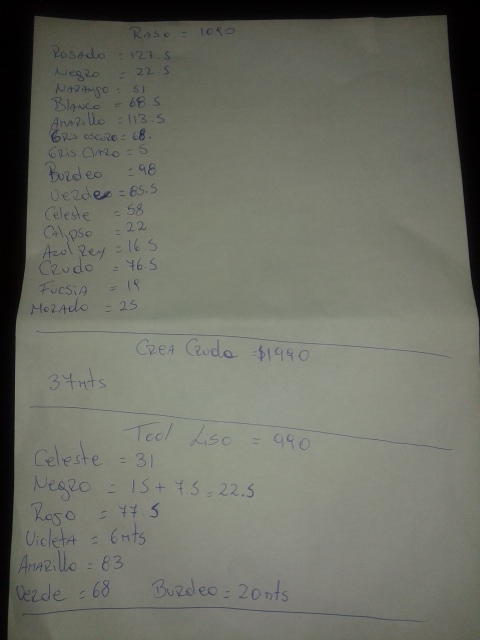 RASO = 1090
ROSADO = 127.5
Negro = 22.5
NARANJO = 51
Blanco = 68.5
AMARillo = 113.5
GRIS OSCURO = 68.
GRIS ClARO = 5
Burdeo = 98
Verde = 85.5
Celeste = 58
CAlipso = 22
Azul Rey = 16.5
CRUDO = 76.5
FUCSIA = 19
MORADO = 25
CREA CRUDA = $1990
37mts
Tool LISO = 990
Celeste = 31
Negro = 15 + 7.5 = 22.5
Rojo = 77.5
Violeta = 6mts
AMARillo = 83
Verde = 68 Burdeo = 20mts